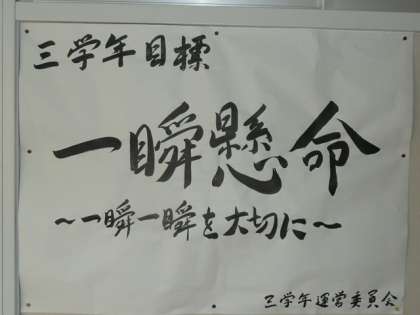 三学年目標
一瞬懸命
～一瞬一瞬を大切に～
三学年運営委員会